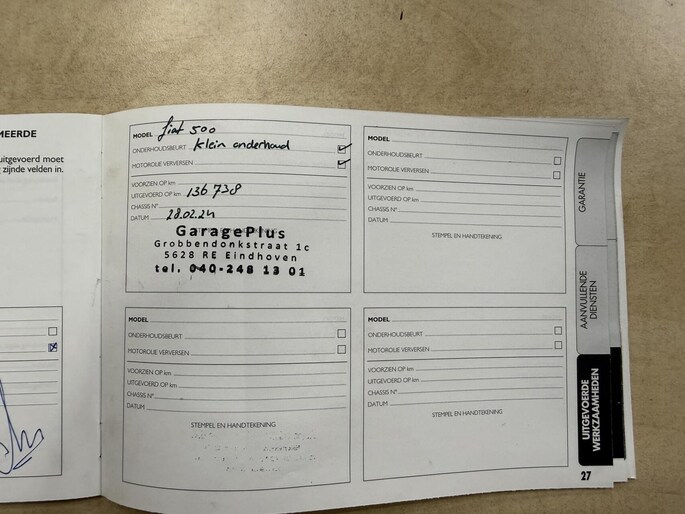 MEERDE
uitgevoerd moet
zijnde velden in.
MODEL fiat 500
ONDERHOUDSBEURT klein onderhoud
MOTOROLIE VERVERSEN
VOORZIEN OP km
UITGEVOERD OP km 136 738
CHASSIS N°
DATUM 28.02.24
GaragePlus
Grobbendonkstraat 1c
5628 RE Eindhoven
tel. 040-248 13 01
MODEL
ONDERHOUDSBEURT
MOTOROLIE VERVERSEN
VOORZIEN OP km
UITGEVOERD OP km
CHASSIS N°
DATUM
STEMPEL EN HANDTEKENING
MODEL
ONDERHOUDSBEURT
MOTOROLIE VERVERSEN
VOORZIEN OP km
UITGEVOERD OP km
CHASSIS N°
DATUM
STEMPEL EN HANDTEKENING
MODEL
ONDERHOUDSBEURT
MOTOROLIE VERVERSEN
VOORZIEN OP km
UITGEVOERD OP km
CHASSIS N°
DATUM
STEMPEL EN HANDTEKENING
GARANTIE
AANVULLENDE
DIENSTEN
UITGEVOERDE
WERKZAAMHEDEN
27